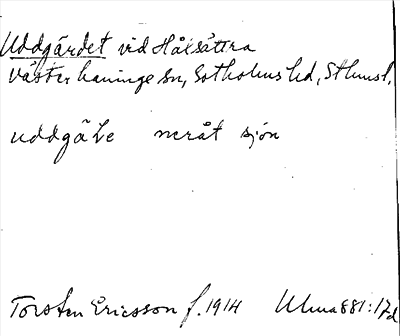 Uddgärdet vid Håksättra
Västerhaninge sn, Sotholms hd, Sthmsl.
uddgäLe neråt sjön
Torsten Ericsson f. 1914 Ulma 881:17d